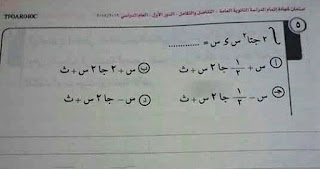 امتحان شهادة إتمام الدراسة الثانوية العامة - التفاضل والتكامل - الدور الأول - العام الدراسي ٢٠١٨/٢٠١٧
٥ ∫ ٢ جتا٢ س ء س = ............
أ س + ١/٢ جا ٢ س + ث
ب س + ٢ جا ٢ س + ث
ج س - ١/٢ جا ٢ س + ث
د س - جا ٢ س + ث